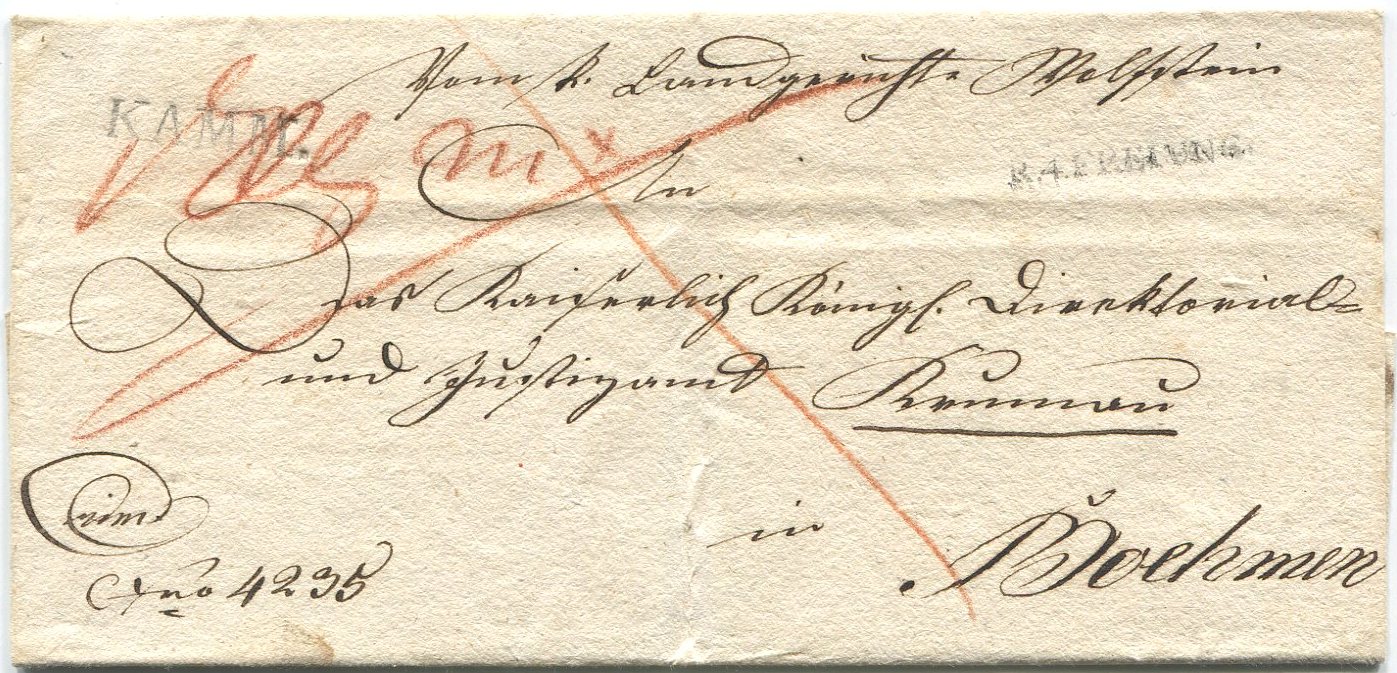 Vom k. Landgerichte Wolfstein
KAMM.
R.4.FREIUNG.
An
Das Kaiserlich Königl. Direktorial-
und Justizamt Krummau
in Boehmen
Exno 4235